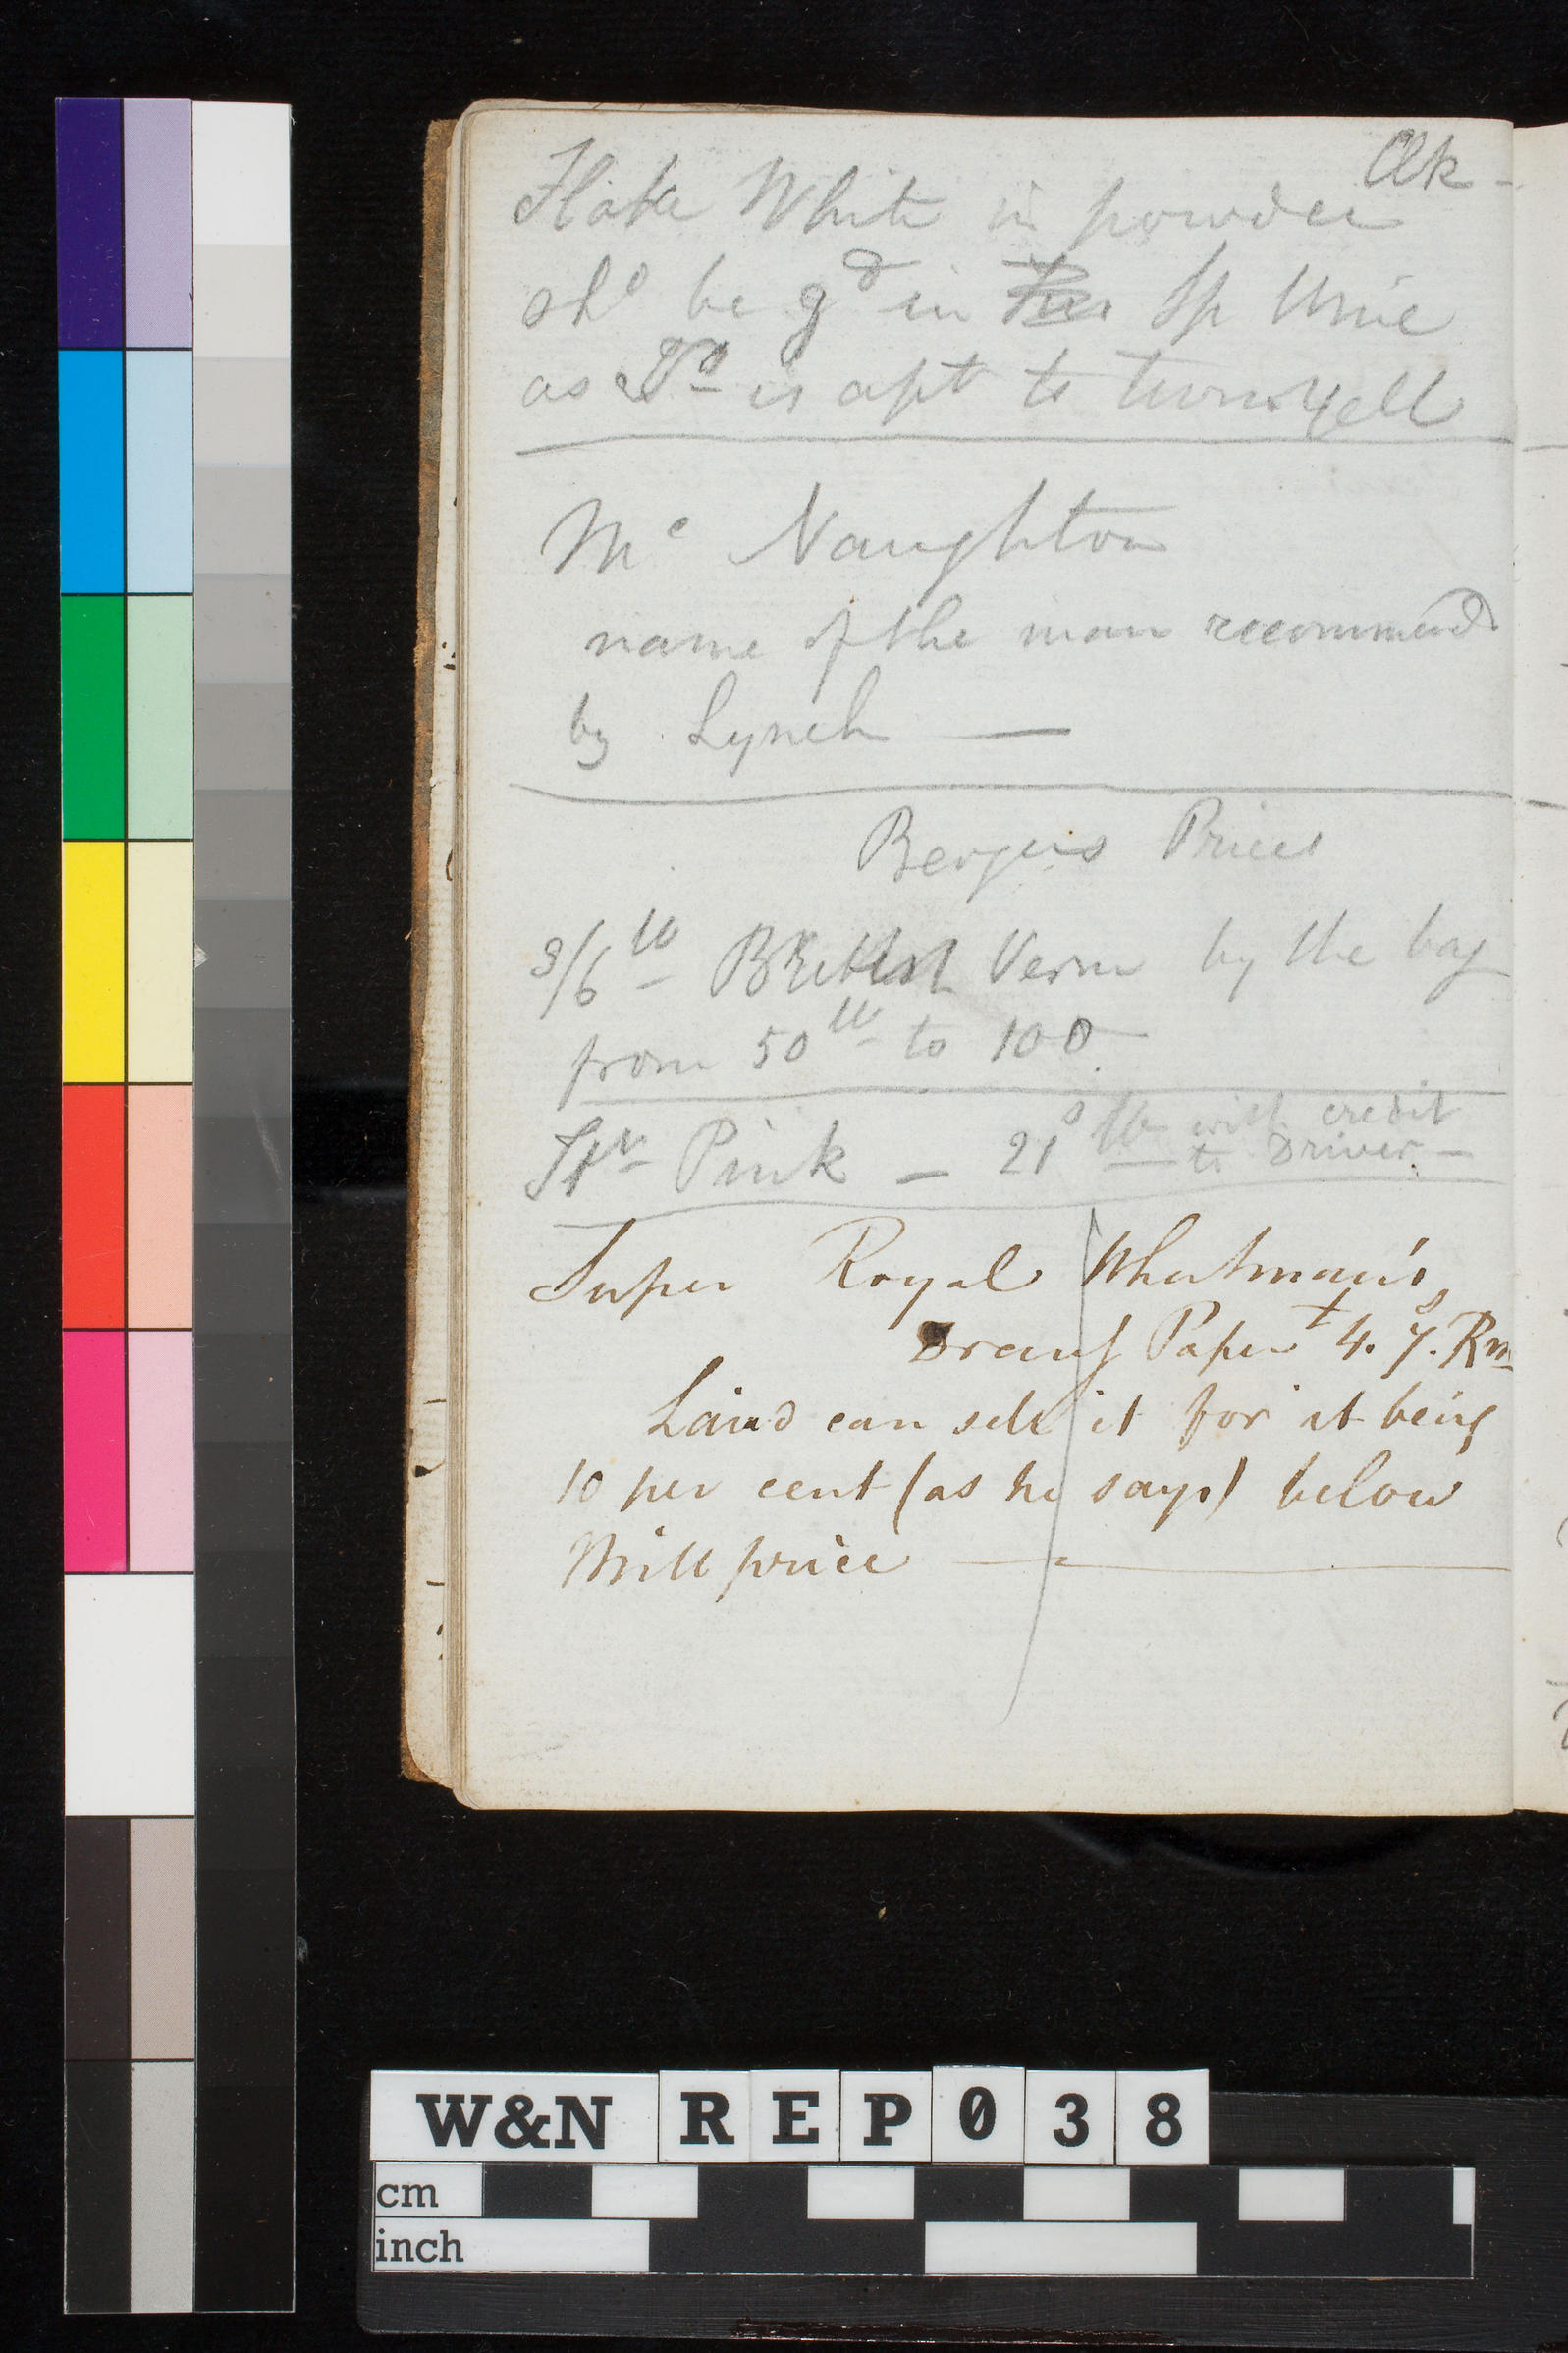 Ck -
Flake White in powder
shd be gd in Sp Wine
as To is apt to turn yell
Mc Naughton
name of the man recommend
by Lynch —
Bergers Prices
3/6 lb - British Verm by the bag
from 50 lb to 100
Pink — 21s lb with credit
to Driver -
Super Royal Whatman's
Drang Paper £4.7. Rm
Laird can sell it for it being
10 per cent (as he says) below
Mill price —
W&N REP038
cm
inch